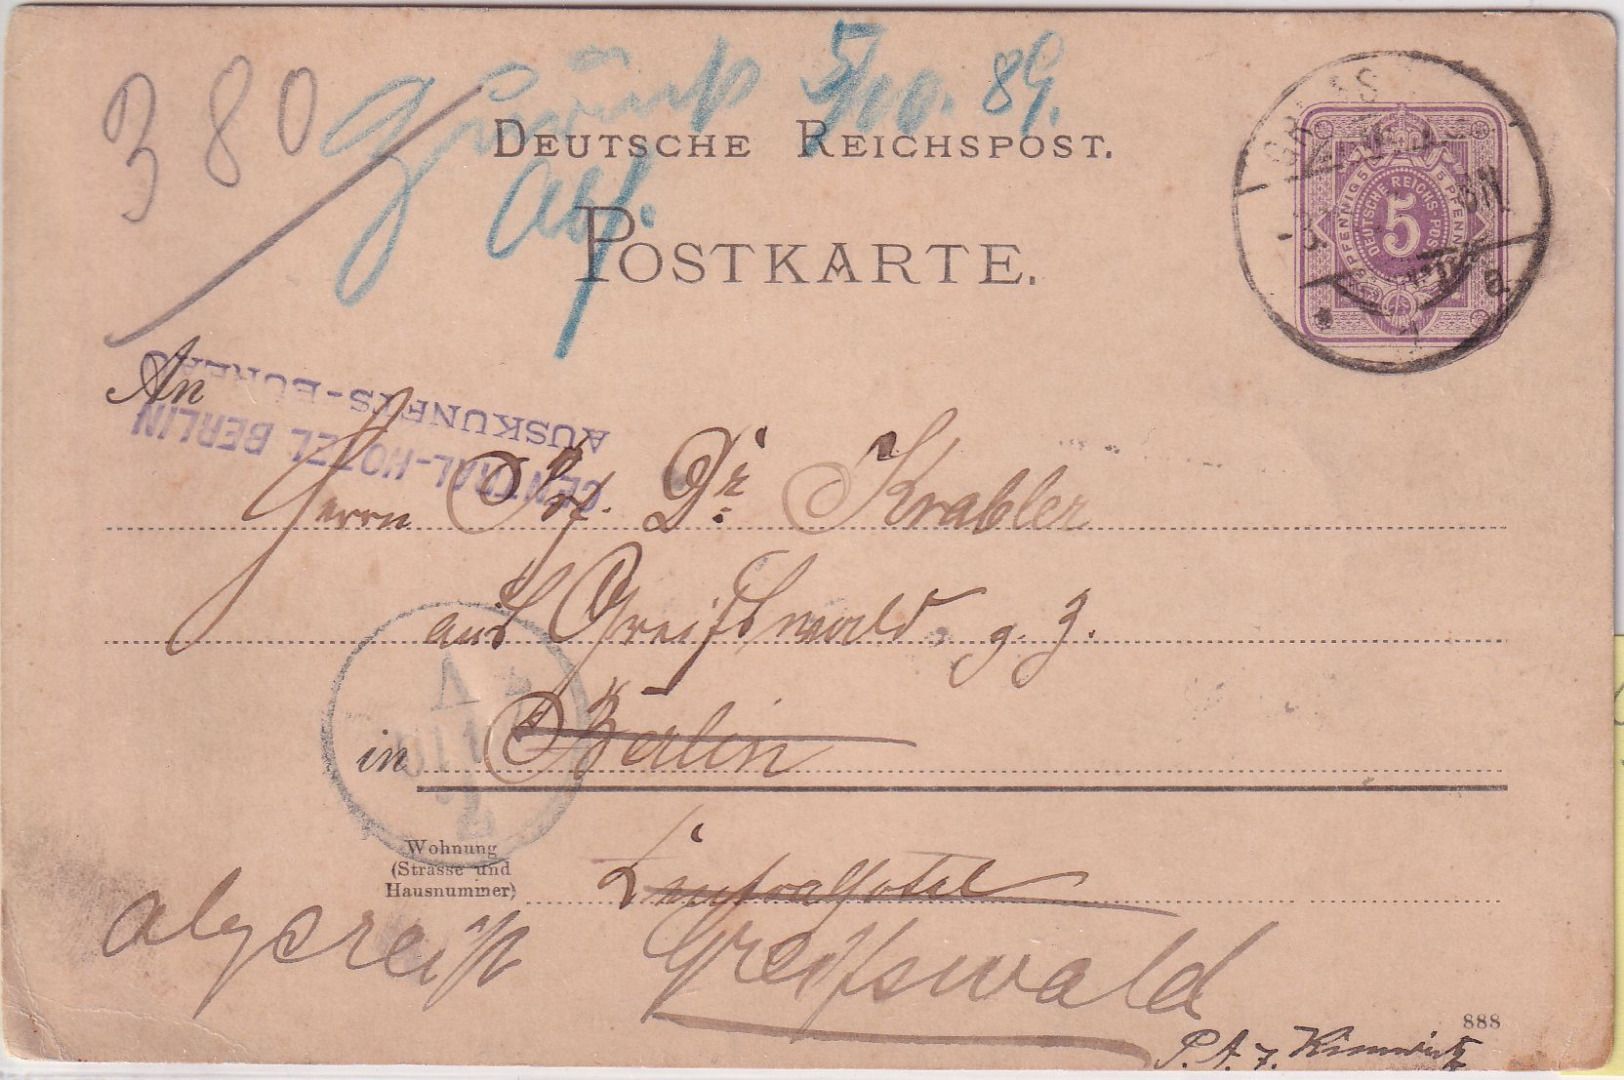 380
5/10. 89.
Abs.
DEUTSCHE REICHSPOST.
POSTKARTE.
5 PFENNIG 5 PFENNIG
DEUTSCHE REICHS-POST
5
An
CENTRAL-HOTEL BERLIN
AUSKUNFTS-BUREAU
Herrn Prof. Dr. Krabler
aus Greifswald, z. Z.
in Berlin
Wohnung
(Strasse und
Hausnummer)
Centralhotel
abgereist Greifswald
888
P. A. 7.